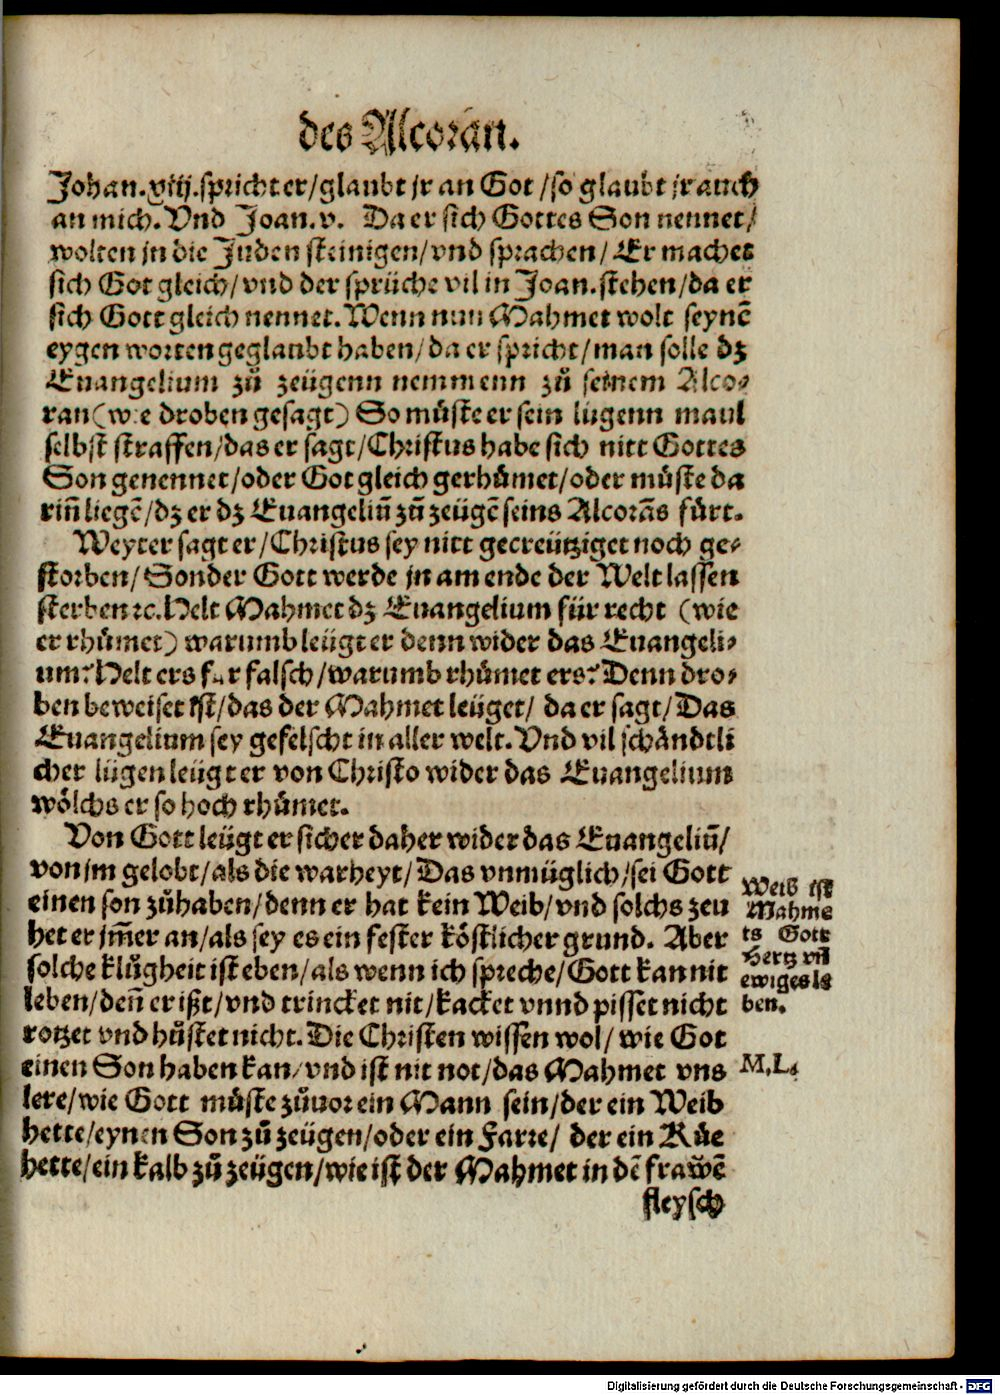 des Alcoran.
Johan. xiiij. spricht er/glaubt jr an Got/so glaubt jr auch
an mich. Vnd Joan. v. Da er sich Gottes Son nennet/
wolten jn die Juden steinigen/vnd sprachen/ Er machet
sich Got gleich/vnd der sprüche vil in Joan. stehen/da er
sich Gott gleich nennet. Wenn nun Mahmet wolt seynē
eygen worten geglaubt haben/da er spricht/man solle dz
Euangelium zů zeügenn nemmenn zů seinem Alco⸗
ran (wie droben gesagt) So můste er sein lugenn maul
selbst straffen/das er sagt/Christus habe sich nitt Gottes
Son genennet/oder Got gleich gerhůmet/oder můste da
riñ liegē/dz er dz Euangeliū zū zeügē seins Alcorās fůrt.
Weyter sagt er/Christus sey nitt gecreütziget noch ge⸗
storben/Sonder Gott werde jn am ende der Welt lassen
sterben ꝛc. Helt Mahmet dz Euangelium für recht (wie
er rhůmet) warumb leügt er denn wider das Euangeli⸗
um? Helt ers fur falsch/warumb rhůmet ers? Denn dro⸗
ben beweiset ist/das der Mahmet leüget/ da er sagt/Das
Euangelium sey gefelscht in aller welt. Vnd vil schåndtli
cher lügen leügt er von Christo wider das Euangelium
wölchs er so hoch rhůmet.
Von Gott leügt er sicher daher wider das Euangeliū/
von jm gelobt/als die warheyt/Das vnmüglich/sei Gott
einen son zůhaben/denn er hat kein Weib/vnd solchs zeu
het er jm̄er an/als sey es ein fester köstlicher grund. Aber
solche klůgheit ist eben/als wenn ich spreche/Gott kan nit
leben/deñ er ißt/vnd trincket nit/kacket vnnd pisset nicht
rotzet vnd hůstet nicht. Die Christen wissen wol/ wie Got
einen Son haben kan/vnd ist nit not/das Mahmet vns
lere/wie Gott můste zůuor ein Mann sein/der ein Weib
hette/eynen Son zů zeügen/oder ein Farre/ der ein Kůe
hette/ein kalb zů zeügen/wie ist der Mahmet in dē frawē
fleysch
Weib ist
Mahme
ts Gott
Hertz vñ
ewiges le
ben.
M.L.
Digitalisierung gefördert durch die Deutsche Forschungsgemeinschaft - DFG